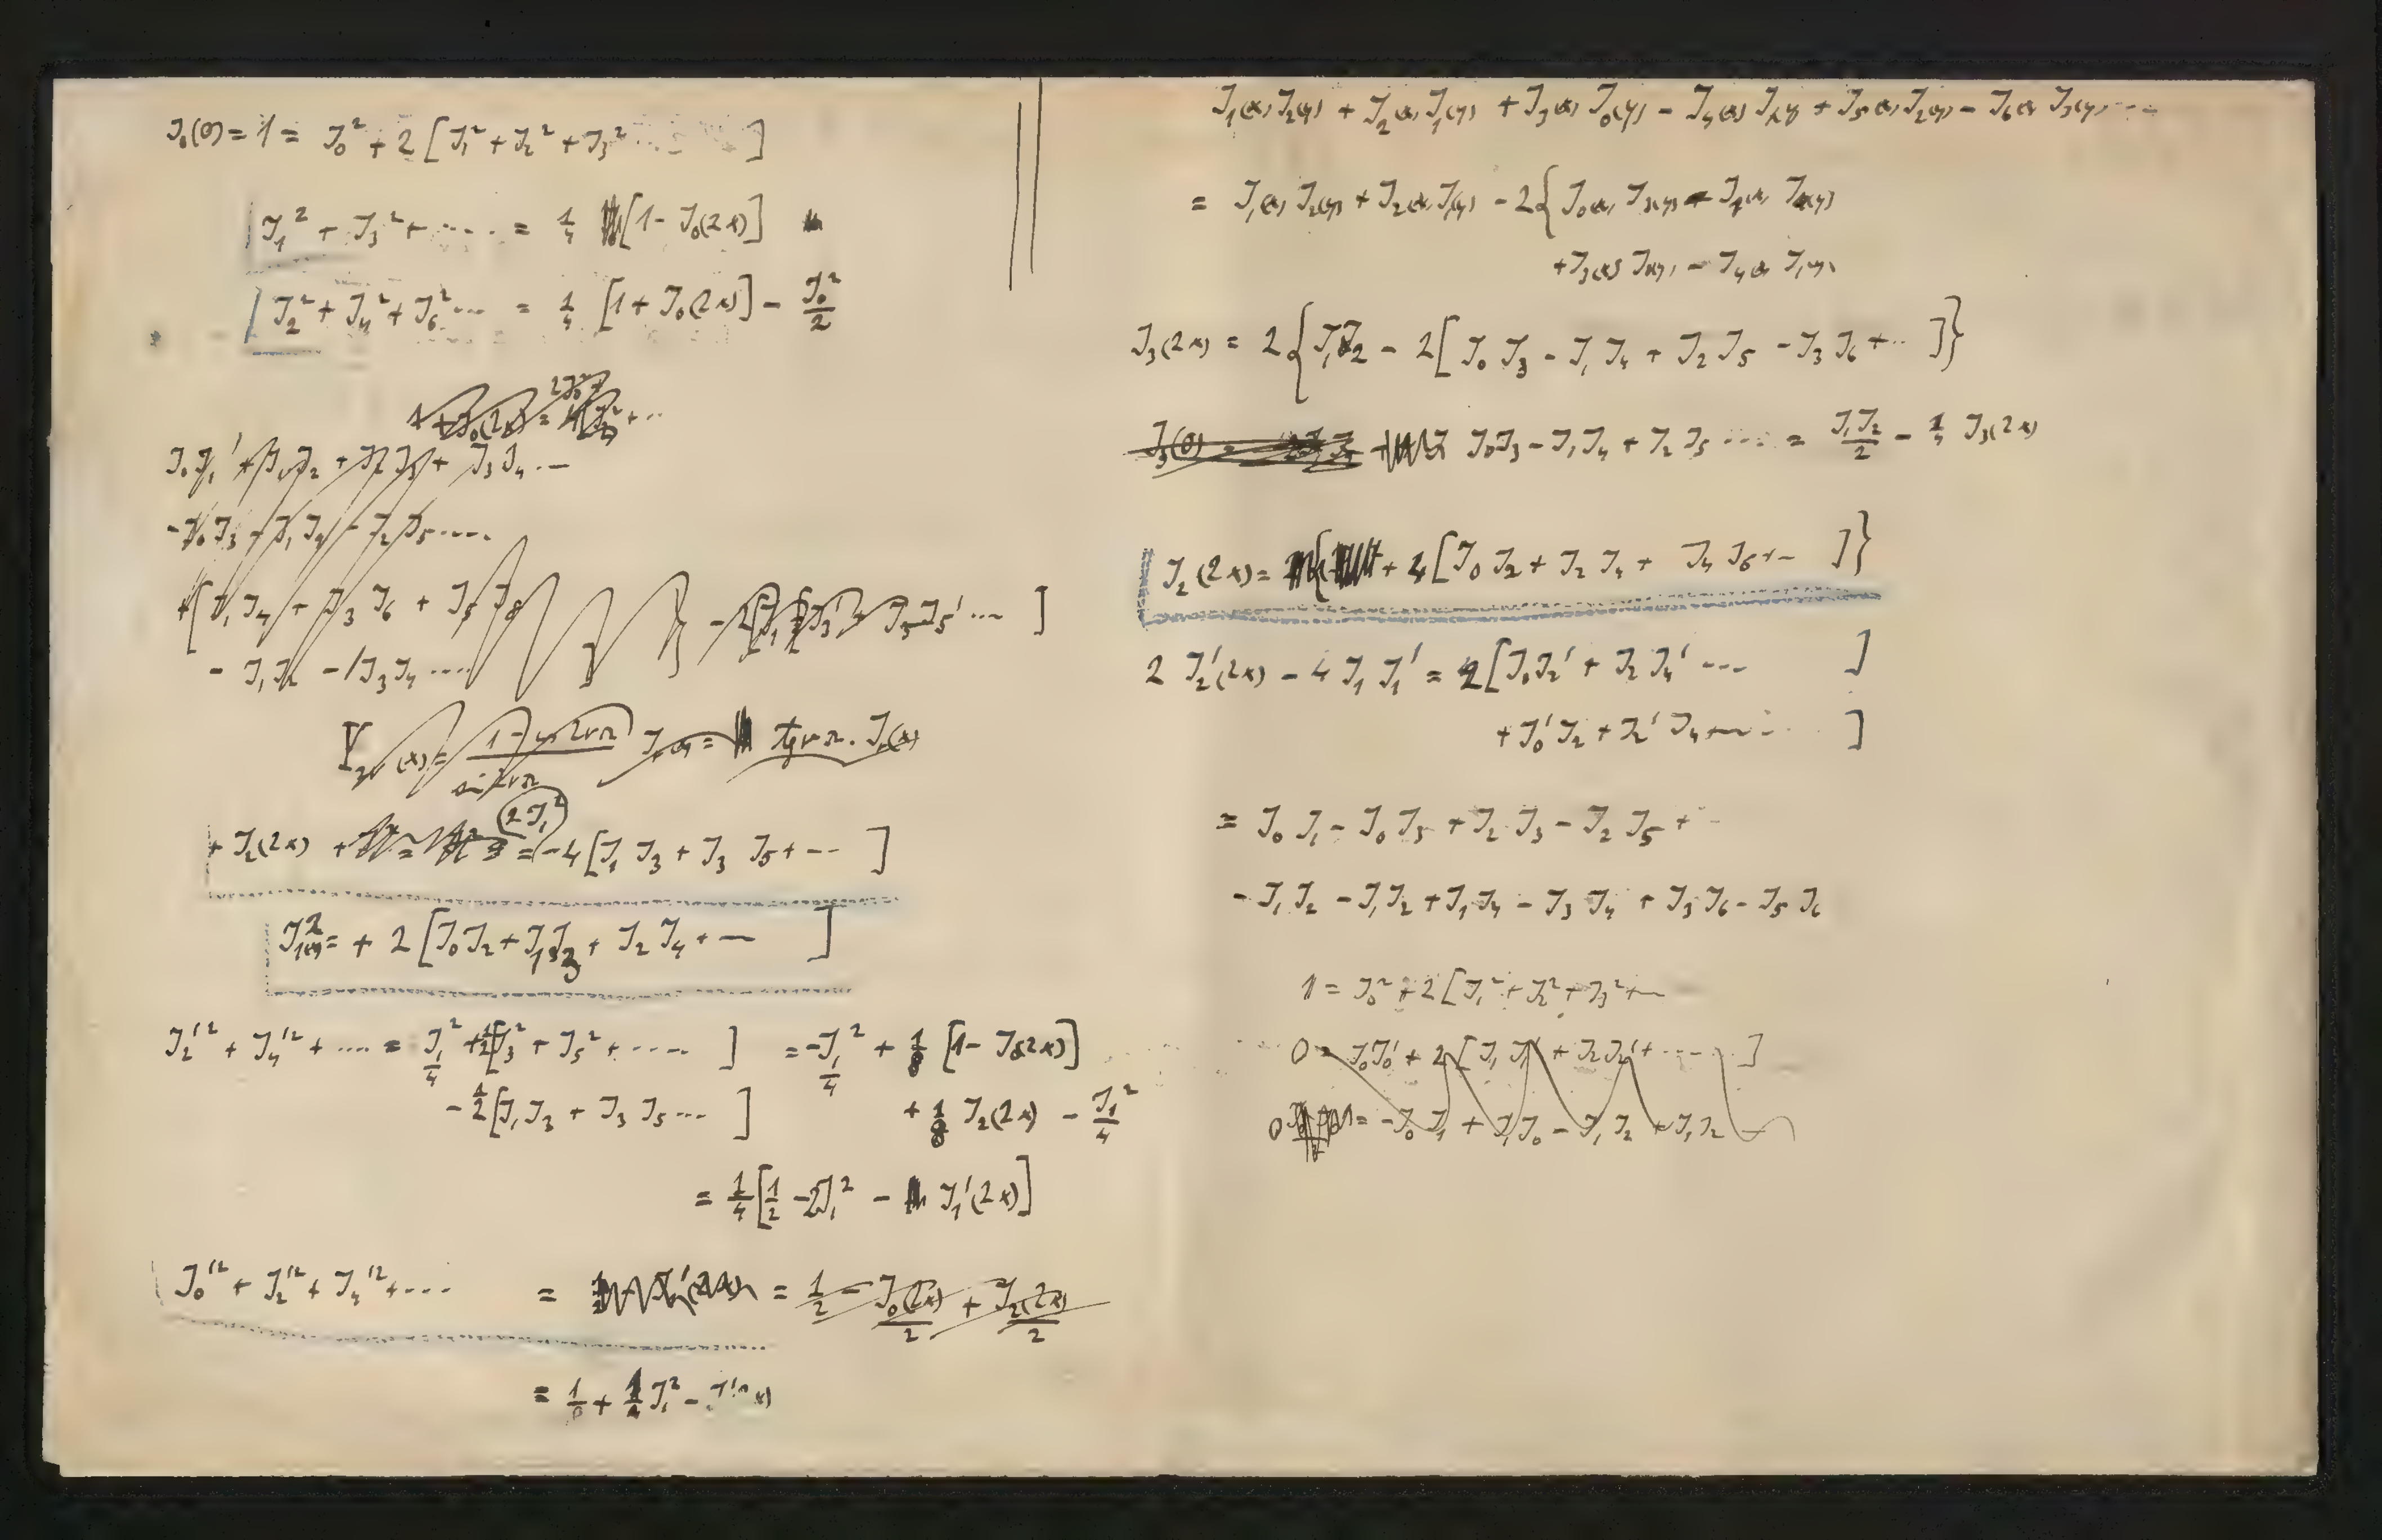 J₀(0) = 1 = J₀² + 2 [J₁² + J₂² + J₃² ... ]
J₁² + J₃² + ..... = 1/4 [1 - J₀(2x)]
J₂² + J₄² + J₆² ... = 1/4 [1 + J₀(2x)] - J₀²/2
J₀J₁' + J₁J₂ + J₂J₃ + J₃J₄ ...
- J₀J₃ - J₁J₄ - J₂J₅ .....
+ [J₁J₄ + J₃J₆ + J₅J₈ ]
- J₁J₂ - J₃J₄ ....
+ J₂(2x) + 2J₁² = - 4 [J₁J₃ + J₃J₅ + ... ]
J₁²(x) = + 2 [J₀J₂ + J₁J₃ + J₂J₄ + ... ]
J₂'² + J₄'² + .... = J₁²/4 + 1/2[J₃² + J₅² + ..... ] = - J₁²/4 + 1/8 [1 - J₀(2x)]
- 1/2 [J₁J₃ + J₃J₅ ... ] + 1/8 J₂(2x) - J₁²/4
= 1/4 [1/2 - 2J₁² - J₁'(2x)]
J₀'² + J₂'² + J₄'² + ... = = 1/2 - J₀(2x)/2 + J₂(2x)/2
= 1/8 + J₁² -
J₁(x) J₂(y) + J₂(x) J₁(y) + J₃(x) J₀(y) - J₄(x) J₁(y) + J₅(x) J₂(y) - J₆(x) J₃(y) ....
= J₁(x) J₂(y) + J₂(x) J₁(y) - 2 { J₀(x) J₃(y) - J₁(x) J₄(y)
+ J₃(x) J₀(y) - J₄(x) J₁(y)
J₃(2x) = 2 { J₁J₂ - 2 [J₀J₃ - J₁J₄ + J₂J₅ - J₃J₆ + ... ] }
J₃(0) = J₀J₃ - J₁J₄ + J₂J₅ .... = J₁J₂/2 - 1/4 J₃(2x)
J₂(2x) = + 4 [J₀J₂ + J₂J₄ + J₄J₆ + ... ] }
2 J₂'(2x) - 4 J₁J₁' = 2 [J₀J₂' + J₂J₄' ... ]
+ J₀'J₂ + J₂'J₄ + ... ]
= J₀J₁ - J₀J₃ + J₂J₃ - J₂J₅ + ..
- J₁J₂ - J₁J₂ + J₁J₄ - J₃J₄ + J₃J₆ - J₅J₆
1 = J₀² + 2 [J₁² + J₂² + J₃² + ...
0 = J₀J₀' + 2 [J₁J₁' + J₂J₂' + .... ]
0 = - J₀J₁ + J₁J₀ - J₁J₂ + J₁J₂